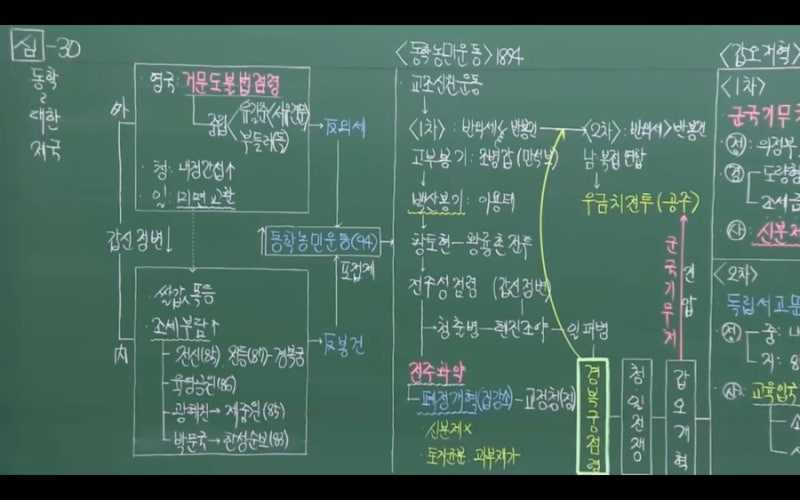 심-30
동학
~
대한
제국
外
영국: 거문도불법점령
중립
유길준<서유견문>
부들러(독)
→反외세
청: 내정간섭↑
일: 미면교환
갑신정변↓
동학농민운동(94)
포접제
쌀값 폭등
조세부담↑
→反봉건
전신(85), 전등(87)-경복궁
육영공원(86)
광혜원→제중원(85)
박문국→한성순보(83)
內
<동학농민운동> 1894
교조신원운동
<1차> : 반외세< 반봉건
고부봉기 : 조병갑(만석보)
백산봉기 : 이용태
황토현-황룡촌 전투
전주성 점령 (갑신정변)
→청출병-톈진조약-일파병
전주화약
폐정개혁(집강소)-교정청(정)
·신분제×
·토지균분 ·과부재가
<2차> : 반외세>반봉건
남·북접 연합
우금치전투(공주)
군국기무처
진압
경복궁점령
청일전쟁
갑오개혁
<갑오개혁>
<1차>
군국기무처
정: 의정부
경
도량형
조세금
사: 신분제
<2차>
독립서고문
정
중: 내
지: 8
사: 교육입국